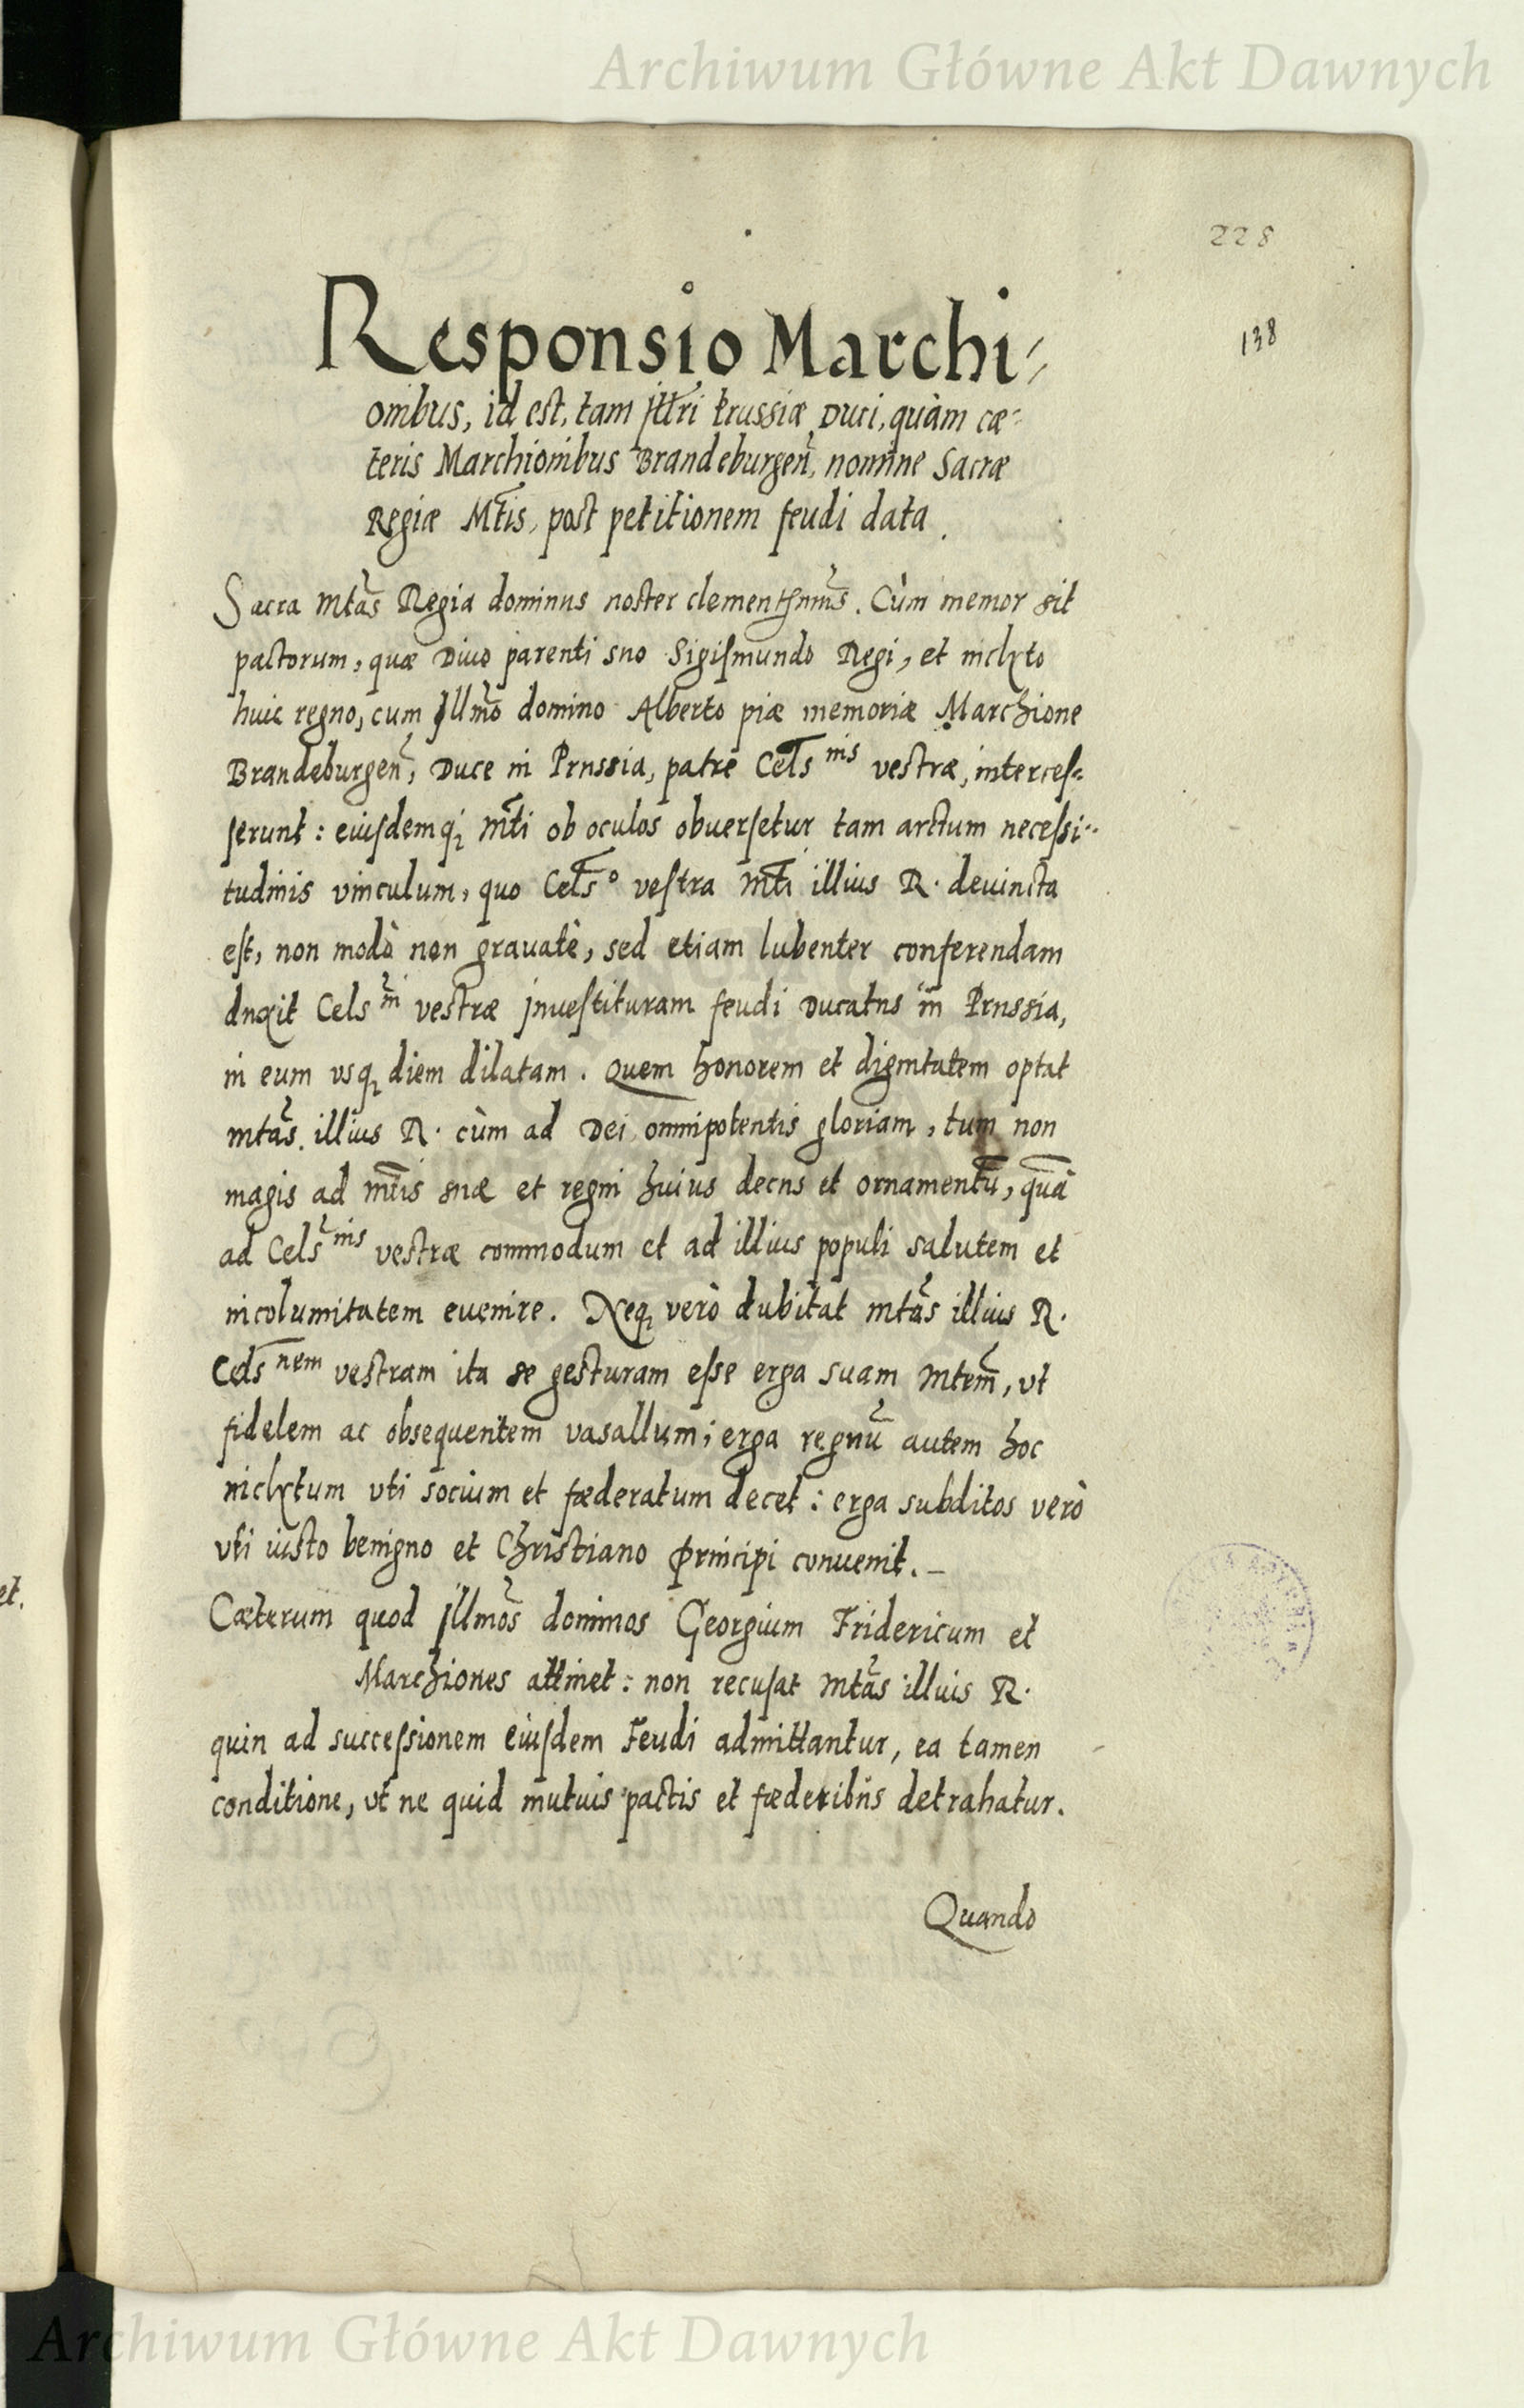 Archiwum Główne Akt Dawnych
228
138
Responsio Marchi-
onibus, id est, tam Illri Prussiæ Duci, quàm cæ-
teris Marchionibus Brandeburgen, nomine Sacræ
Regiæ Mtis, post petitionem feudi data.
Sacra Mtas Regia dominus noster clementissimus. Cùm memor sit
pactorum, quæ Diuo parenti suo Sigismundo Regi, et inclyto
huic regno, cum Illmo domino Alberto piæ memoriæ Marchione
Brandeburgen, Duce in Prussia, patre Cels nis vestræ, interces-
serunt: eiusdemq; Mti ob oculos obuersetur tam arctum necessi-
tudinis vinculum, quo Cels o vestra Mti illius R. deuincta
est, non modò non grauatè, sed etiam lubenter conferendam
duxit Cels ni vestræ inuestituram feudi Ducatus in Prussia,
in eum vsq; diem dilatam. Quem honorem et dignitatem optat
mtas illius R. cùm ad Dei omnipotentis gloriam, tum non
magis ad mtis suæ et regni huius decus et ornamentū, quā
ad Cels nis vestræ commodum et ad illius populi salutem et
incolumitatem euenire. Neq; verò dubitat mtas illius R.
Cels nem vestram ita se gesturam esse erga suam Mtem, vt
fidelem ac obsequentem vasallum; erga regnū autem hoc
inclytum vti socium et fœderatum decet: erga subditos verò
vti iusto benigno et Christiano Principi conuenit. –
Cæterum quod Illmos dominos Georgium Fridericum et
Marchiones attinet: non recusat Mtas illius R.
quin ad successionem eiusdem Feudi admittantur, ea tamen
conditione, vt ne quid mutuis pactis et fœderibus detrahatur.
Quando
et.
Archiwum Główne Akt Dawnych